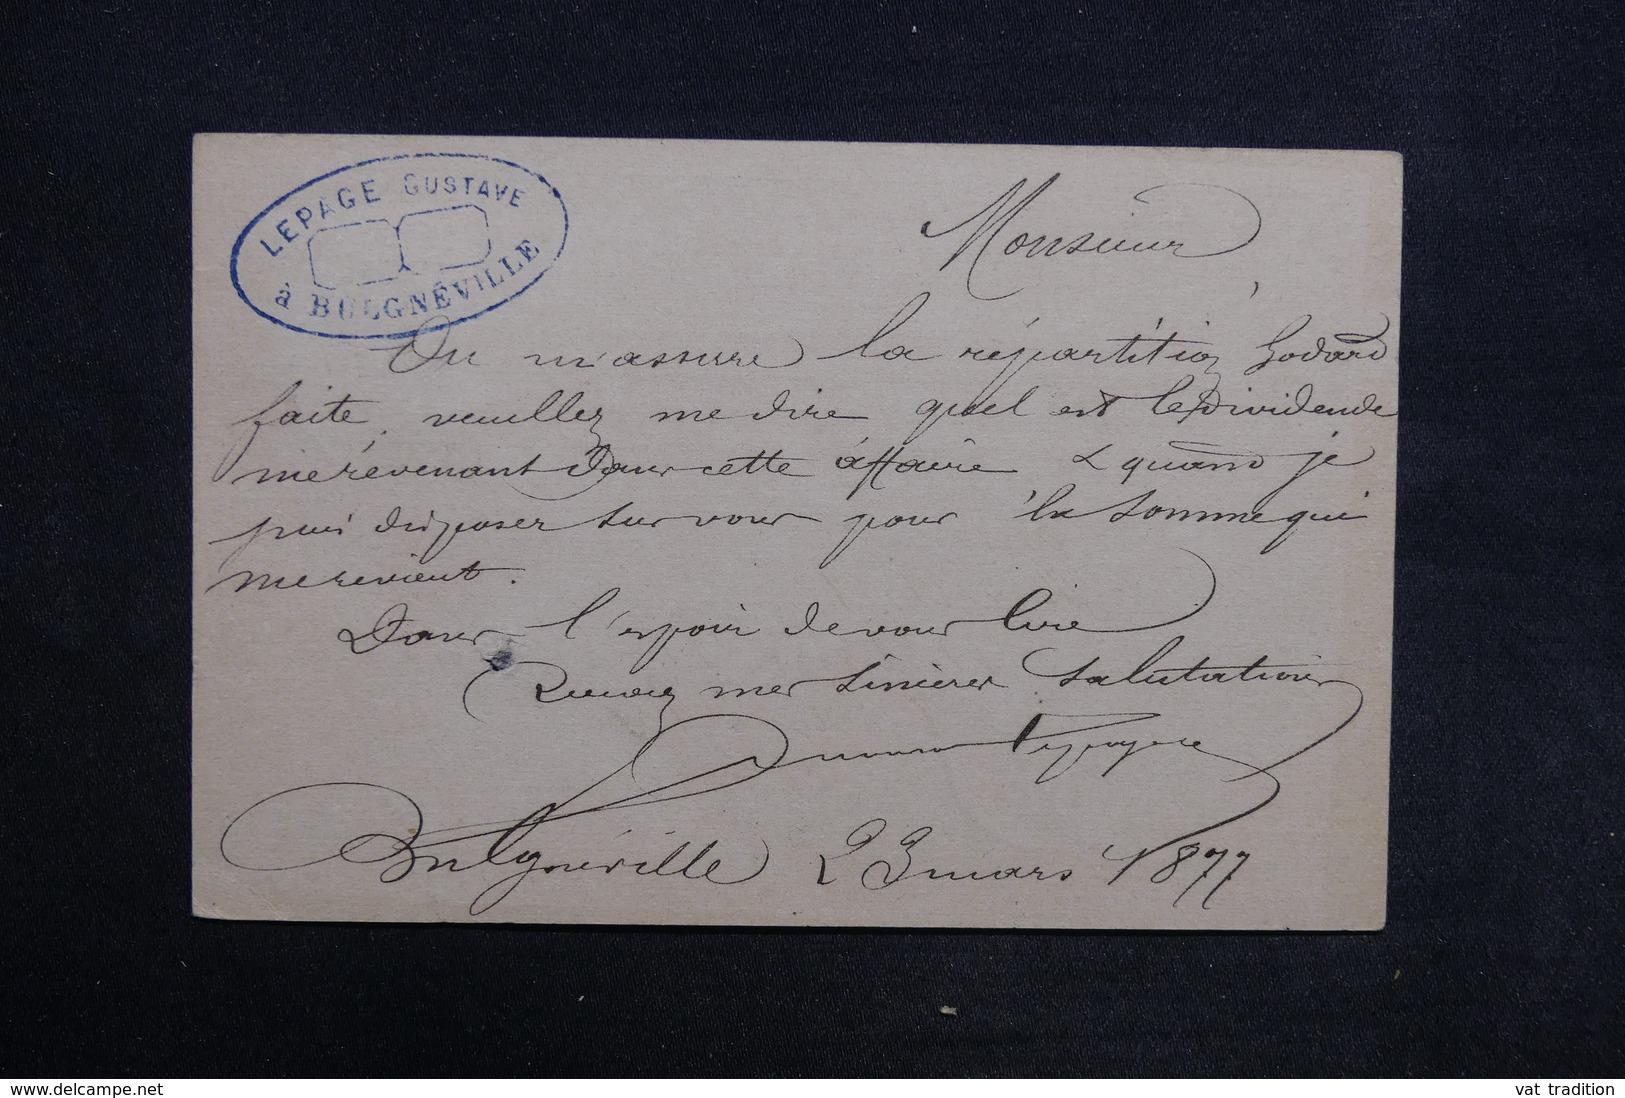 LEPAGE GUSTAVE
à BULGNÉVILLE
Monsieur
On m'assure la répartition Godard
faite, veuillez me dire quel est le dividende
me revenant dans cette affaire & quand je
puis disposer sur vous pour la somme qui
me revient.
Dans l'espoir de vous lire
Recevez mes sincères salutations
Bulgnéville 23 mars 1877
www.delcampe.net
vat tradition